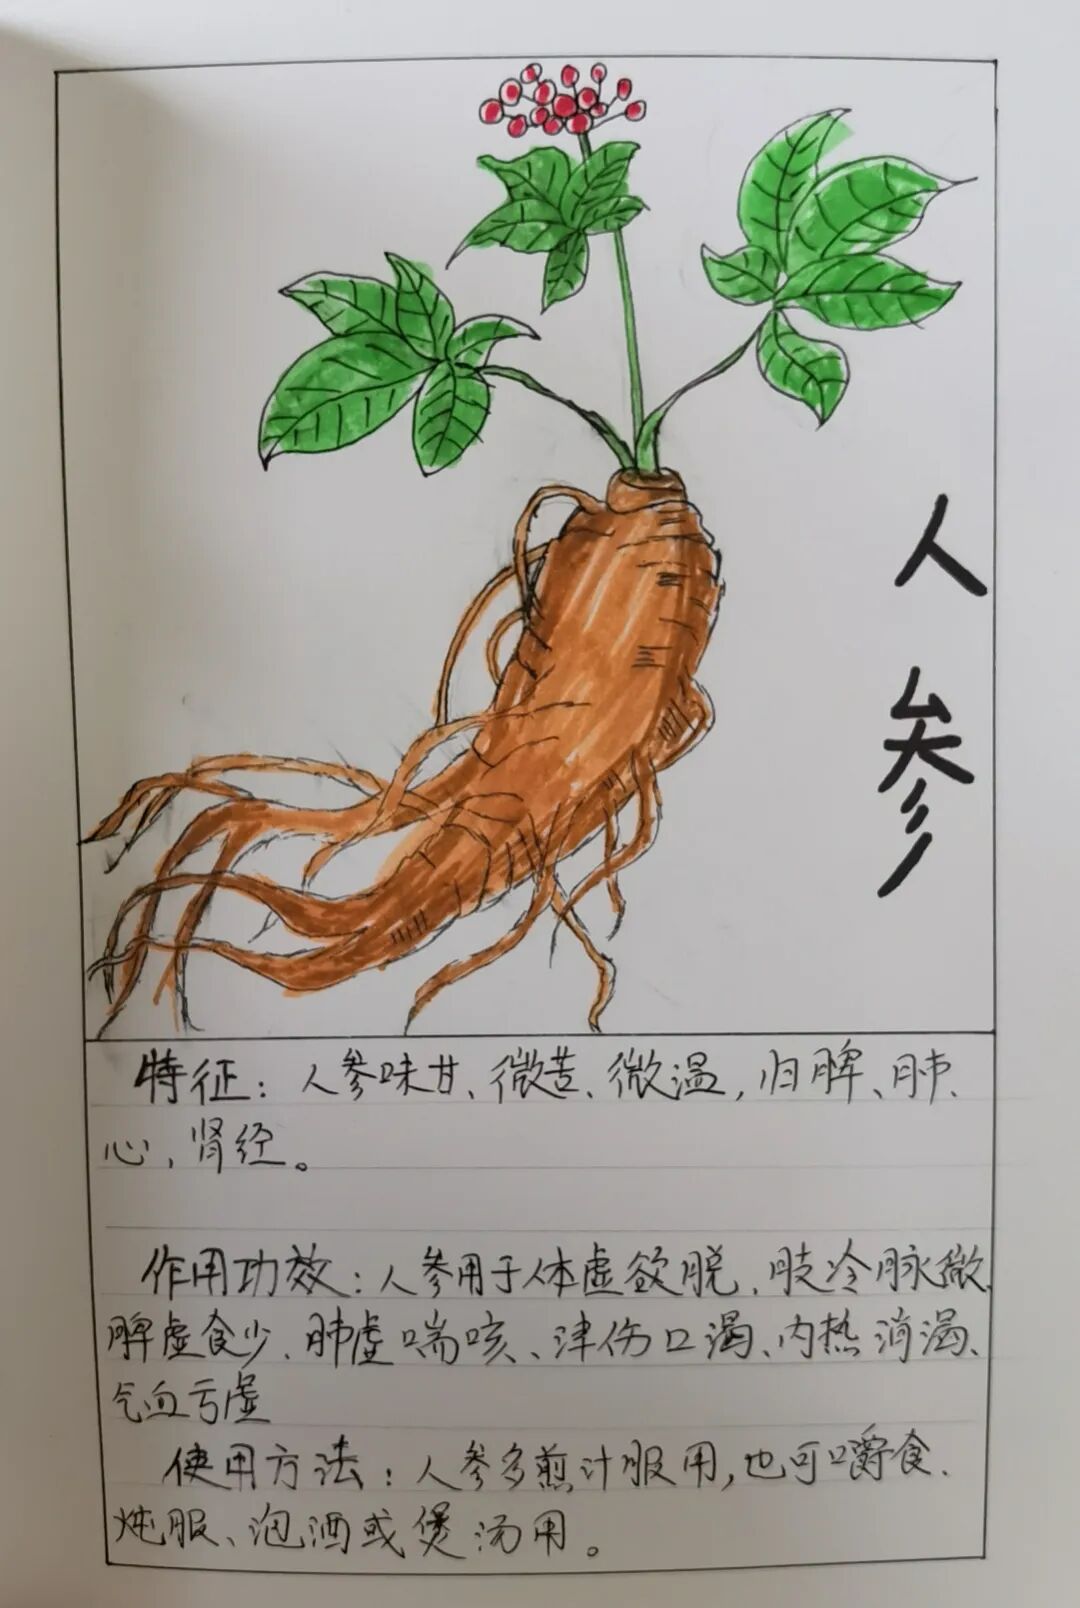 人参
特征：人参味甘、微苦、微温，归脾、肺、
心，肾经。
作用功效：人参用于体虚欲脱、肢冷脉微、
脾虚食少、肺虚喘咳、津伤口渴、内热消渴、
气血亏虚
使用方法：人参多煎汁服用，也可嚼食、
炖服、泡酒或煲汤用。